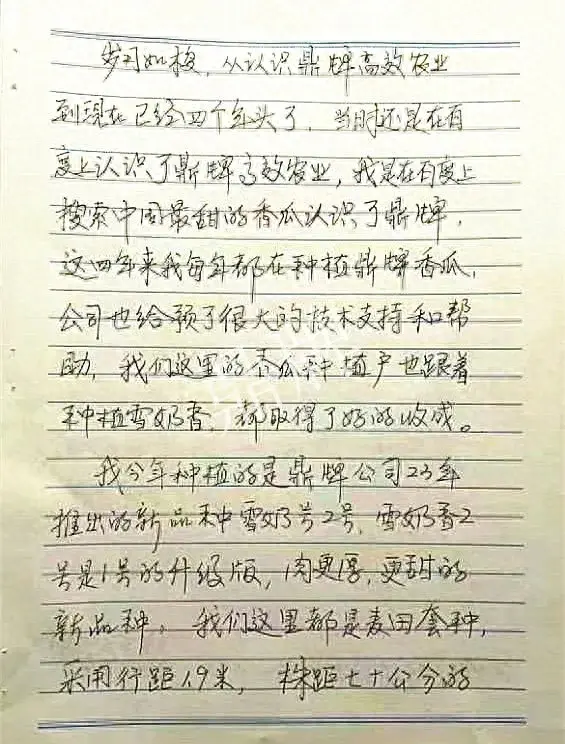 岁月如梭，从认识鼎牌高效农业
到现在已经四个年头了，当时还是在百
度上认识了鼎牌高效农业，我是在百度上
搜索中国最甜的香瓜认识了鼎牌，
这四年来我每年都在种植鼎牌香瓜，
公司也给予了很大的技术支持和帮
助，我们这里的香瓜种植户也跟着
种植雪奶香，都取得了好的收成。
我今年种植的是鼎牌公司23年
推出的新品种雪奶香2号，雪奶香2
号是1号的升级版，肉更厚，更甜的
新品种。我们这里都是麦田套种，
采用行距1.9米，株距七十公分的